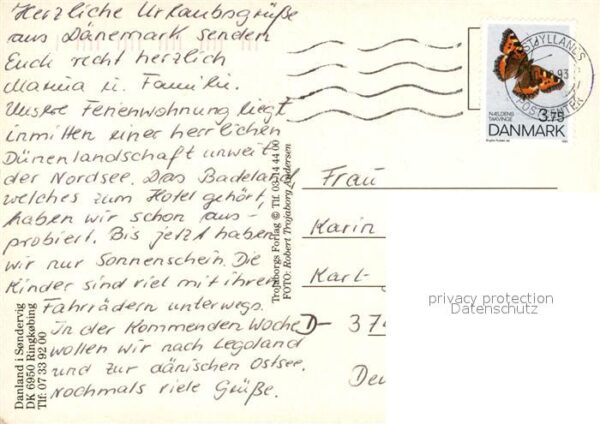 Herzliche Urlaubsgrüße
aus Dänemark senden
Euch recht herzlich
u. Familie.
Unsere Ferienwohnung liegt
inmitten einer herrlichen
Dünenlandschaft unweit
der Nordsee. Das Badeland
welches zum Hotel gehört,
haben wir schon aus-
probiert. Bis jetzt haben
wir nur Sonnenschein. Die
Kinder sind viel mit ihren
Fahrrädern unterwegs.
In der kommenden Woche
wollen wir nach Legoland
und zur dänischen Ostsee.
Nochmals viele Grüße.
Danland i Søndervig
DK 6950 Ringkøbing
Tlf: 07 33 92 00
Trojaborgs Forlag © Tlf. 03 14 44 00
FOTO: Robert Trojaborg Andersen
NÆLDENS
TAKVINGE
3.75
DANMARK
93
POSTCENTER
Frau
Karin
Karl-
D- 37
privacy protection
Datenschutz